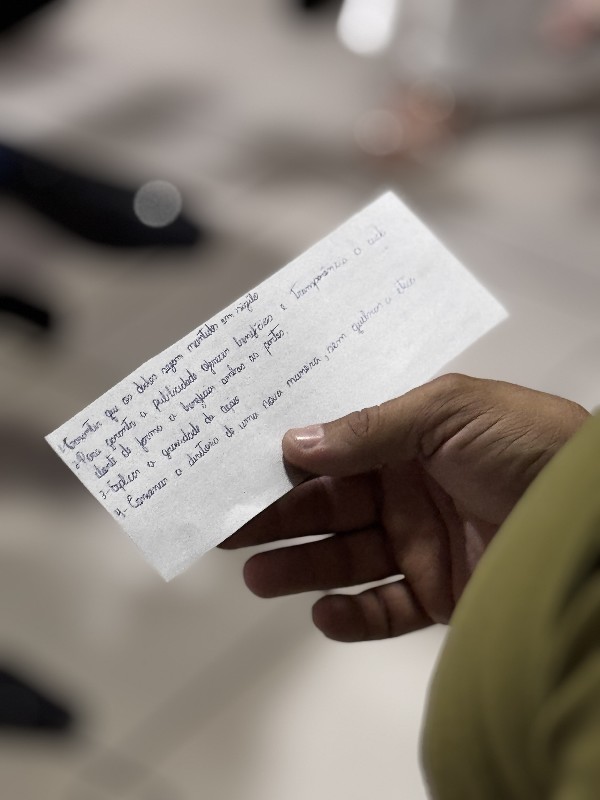 1-Garantir que os dados sejam mantidos em sigilo
2-Para garantir a publicidade oferecer benefícios e Transparência a
cliente de forma a beneficiar ambas as partes
3-Explicar a gravidade do caso
4-Convencer a diretoria de uma nova maneira, sem quebrar a ética